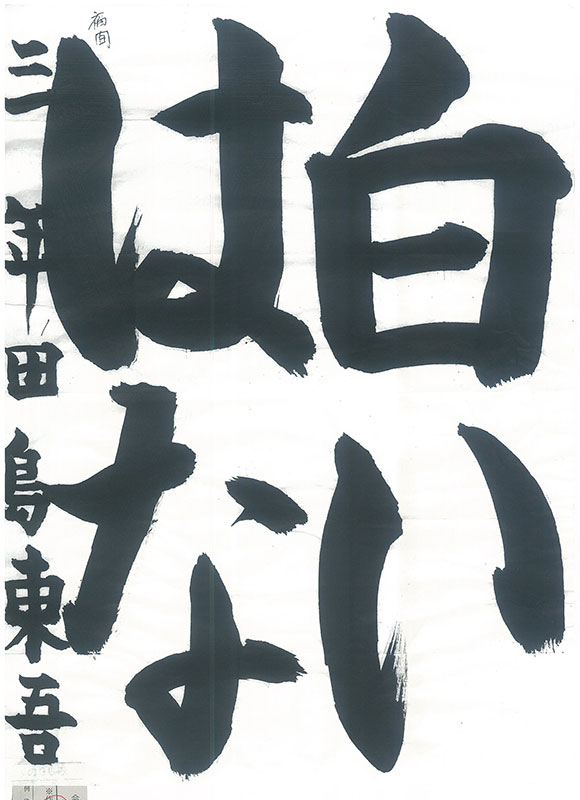 白い
はな
三年田島東吾